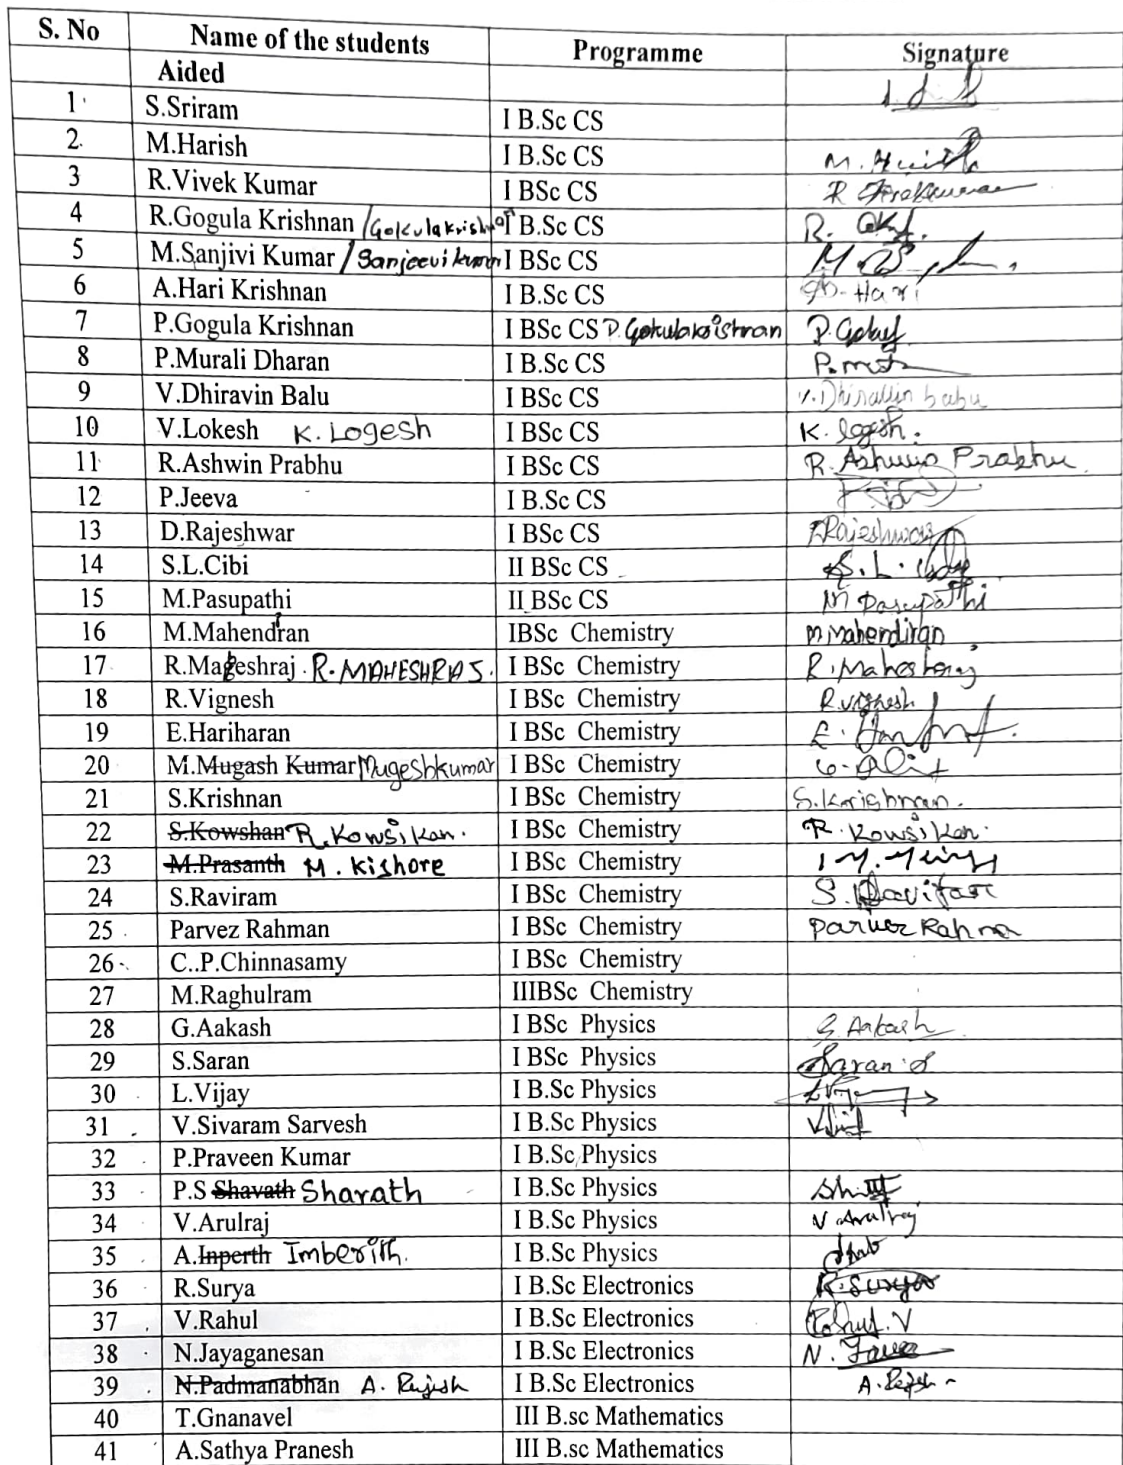 S. No Name of the students Programme Signature
Aided
1 S.Sriram I B.Sc CS
2. M.Harish I B.Sc CS M. Harish
3 R.Vivek Kumar I BSc CS R
4 R.Gogula Krishnan /Gokulakrishnan I B.Sc CS R.
5 M.Sanjivi Kumar / Sanjeevikumar I BSc CS M.
6 A.Hari Krishnan I B.Sc CS A. Hari
7 P.Gogula Krishnan I BSc CS P. Gokulakrishnan P. Gokul
8 P.Murali Dharan I B.Sc CS
9 V.Dhiravin Balu I BSc CS V. Dhiravin babu
10 V.Lokesh K. Logesh I BSc CS K. logesh.
11 R.Ashwin Prabhu I BSc CS R. Ashwin Prabhu
12 P.Jeeva I B.Sc CS
13 D.Rajeshwar I BSc CS D.Rajeshwar
14 S.L.Cibi II BSc CS S.L.
15 M.Pasupathi II BSc CS M Pasupathi
16 M.Mahendiran IBSc Chemistry M.Mahendiran
17 R.Mageshraj R.MAHESHRAJ. I BSc Chemistry R.Maheshraj
18 R.Vignesh I BSc Chemistry R.Vignesh
19 E.Hariharan I BSc Chemistry E.
20 M.Mugash Kumar Mugeshkumar I BSc Chemistry
21 S.Krishnan I BSc Chemistry S.Krishnan.
22 S.Kowshan R.Kowsikan. I BSc Chemistry R.Kowsikan.
23 M.Prasanth M.Kishore I BSc Chemistry
24 S.Raviram I BSc Chemistry S.Raviram
25 Parvez Rahman I BSc Chemistry Parvez Rahman
26 C..P.Chinnasamy I BSc Chemistry
27 M.Raghulram IIIBSc Chemistry
28 G.Aakash I BSc Physics G Aakash
29 S.Saran I BSc Physics Saran.S
30 L.Vijay I B.Sc Physics
31 V.Sivaram Sarvesh I B.Sc Physics
32 P.Praveen Kumar I B.Sc Physics
33 P.S Shavath Sharath I B.Sc Physics
34 V.Arulraj I B.Sc Physics V.Arulraj
35 A.Inperth Imberith. I B.Sc Physics
36 R.Surya I B.Sc Electronics R.Surya
37 V.Rahul I B.Sc Electronics Rahul.V
38 N.Jayaganesan I B.Sc Electronics N.
39 N.Padmanabhan A. Rajesh I B.Sc Electronics A.Rajesh
40 T.Gnanavel III B.sc Mathematics
41 A.Sathya Pranesh III B.sc Mathematics